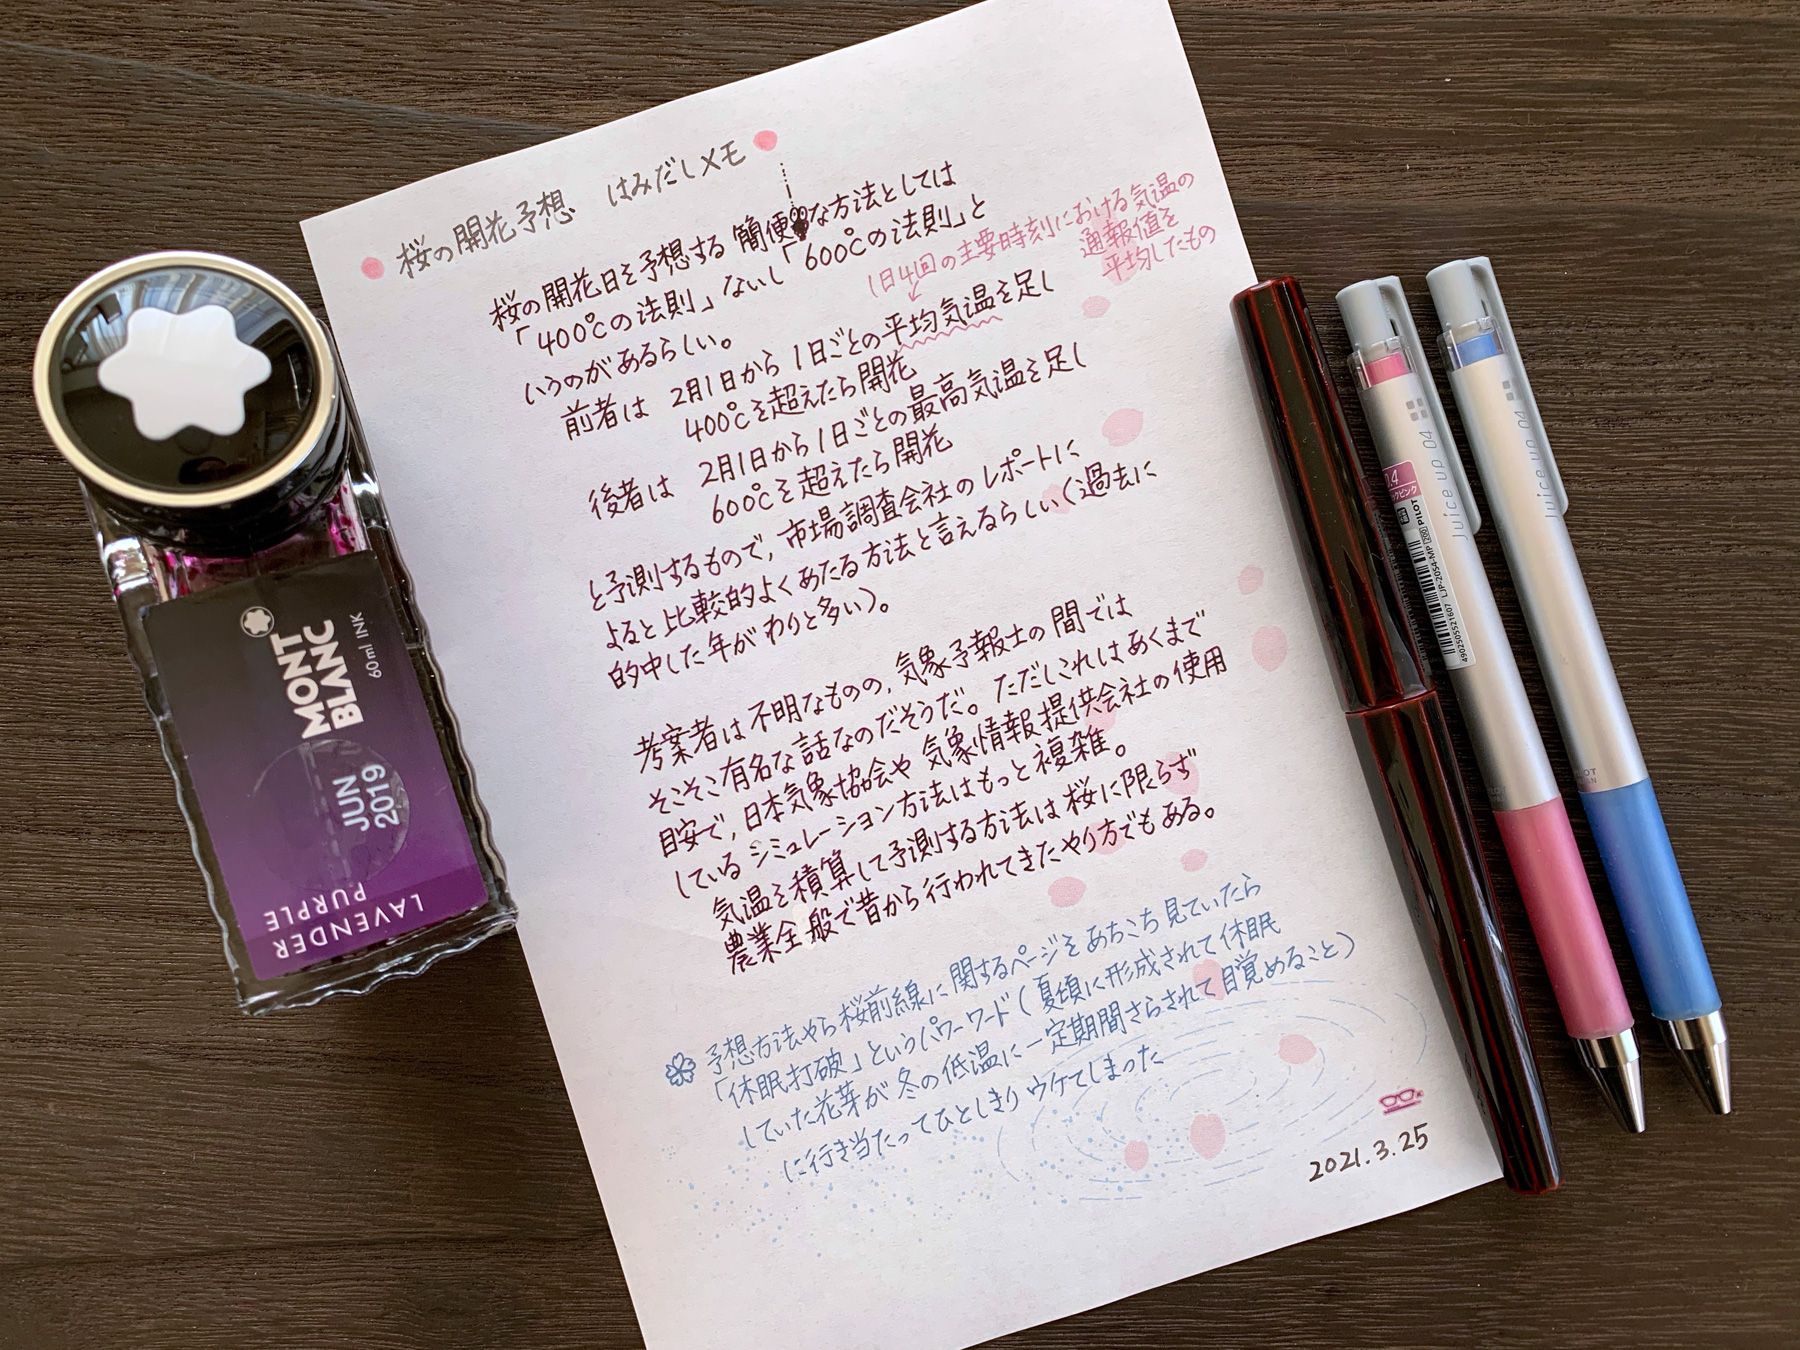 桜の開花予想 はみだしメモ
桜の開花日を予想する簡便な方法としては
「400℃の法則」ないし「600℃の法則」と
いうのがあるらしい。
1日4回の主要時刻における気温の
通報値を
平均したもの
前者は 2月1日から1日ごとの平均気温を足し
400℃を超えたら開花
後者は 2月1日から1日ごとの最高気温を足し
600℃を超えたら開花
と予測するもので，市場調査会社のレポートに
よると比較的よくあたる方法と言えるらしい（過去に
的中した年がわりと多い）。
考案者は不明なものの，気象予報士の間では
そこそこ有名な話なのだそうだ。ただしこれはあくまで
目安で，日本気象協会や気象情報提供会社の使用
しているシミュレーション方法はもっと複雑。
気温を積算して予測する方法は桜に限らず
農業全般で昔から行われてきたやり方でもある。
予想方法やら桜前線に関するページをあちこち見ていたら
「休眠打破」というパワーワード（夏頃に形成されて休眠
していた花芽が冬の低温に一定期間さらされて目覚めること）
に行き当たってひとしきりウケてしまった
2021.3.25
MONT
BLANC
60ml INK
JUN
2019
LAVENDER
PURPLE
Juice up 04
0.4
PILOT
LJP-20S4-MP
4902505521607
Juice up 04